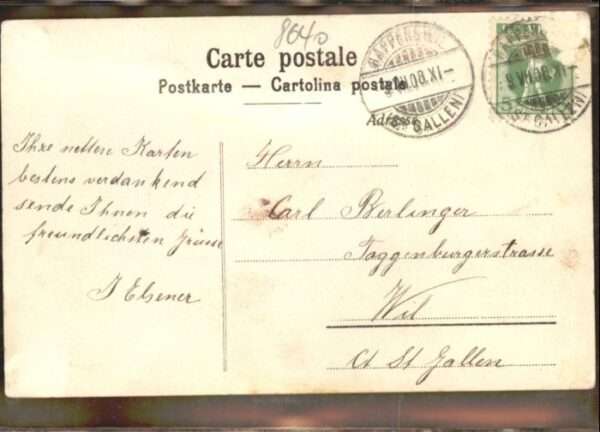 8640
Carte postale
Postkarte — Cartolina postale
Adresse
RAPPERSWIL
VI.08.XI–
(ST. GALLEN)
5
Ihre nettere Karten
bestens verdankend
sende Ihnen die
freundlichsten Grüsse
J Elsener
Herrn
Carl Berlinger
Toggenburgerstrasse
Wil
Ct St Gallen